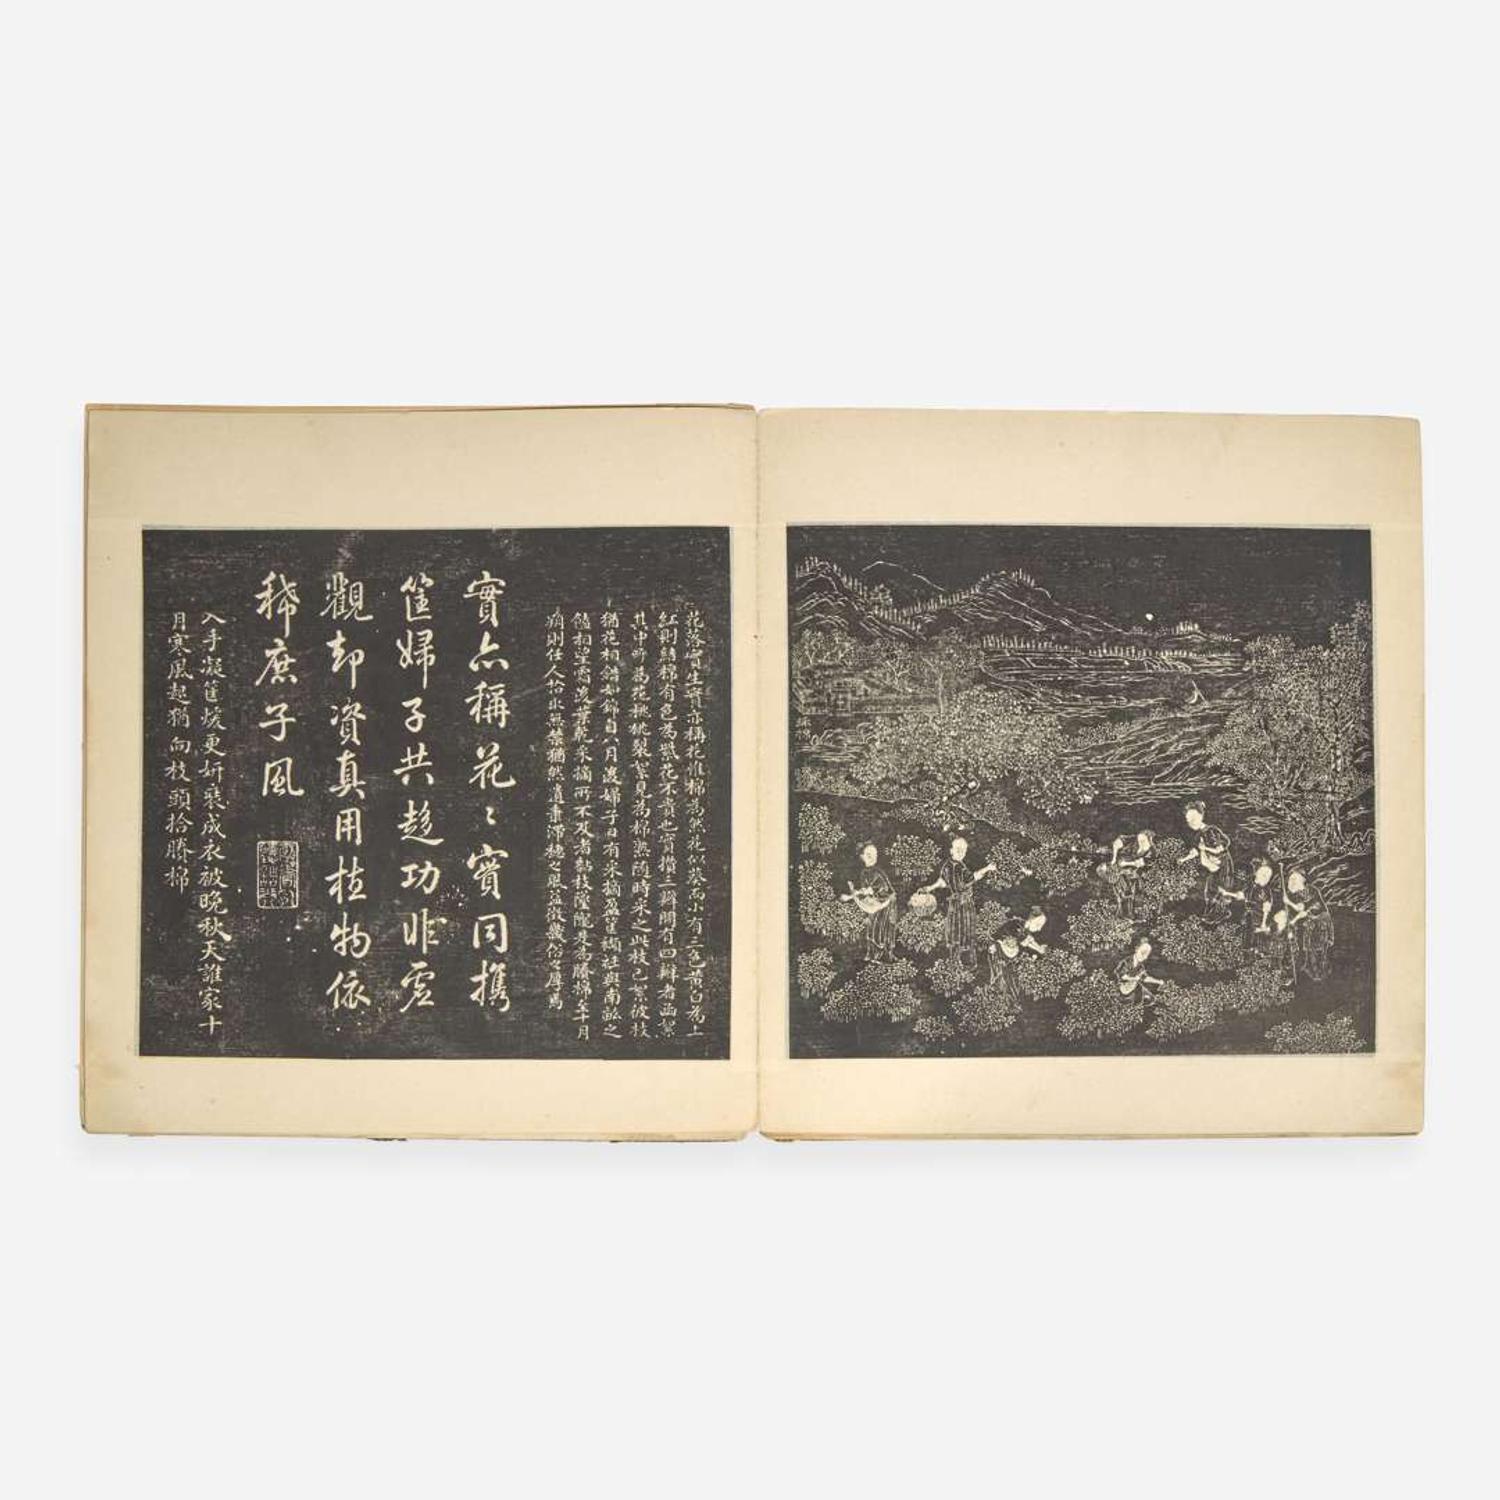 採棉
花落實生實亦稱花惟棉為然花似葵而小有三色黃白為上
紅則結棉有色為紫花不貴也實攢三瓣間有四瓣者函絮
其中呼為花桃桃裂絮見為棉熟隨時采之此枝已絮彼枝
猶花相錯如錦自八月後婦子日有采摘盈筐襭袵與南畝之
饁相望霜後葉乾采摘所不及者黏枝墜隴是為賸棉至十月
朔則任人拾取無禁猶然遺秉滯穗之風益徵畿俗之厚焉
實亦稱花〻實同携
筐婦子共趍功非虛
觀却資真用植物依
稀庶子風
入手凝筐煖更妍裝成衣被晚秋天誰家十
月寒風起猶向枝頭拾賸棉